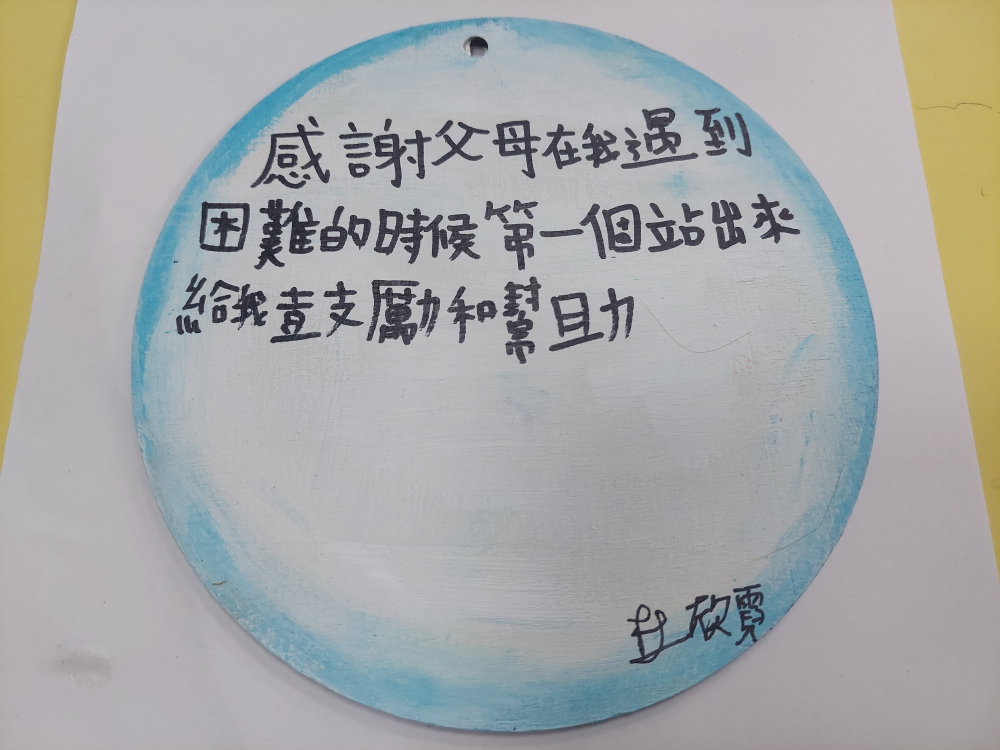 感謝父母在我遇到
困難的時候第一個站出來
給我鼓勵和幫助
欣霓